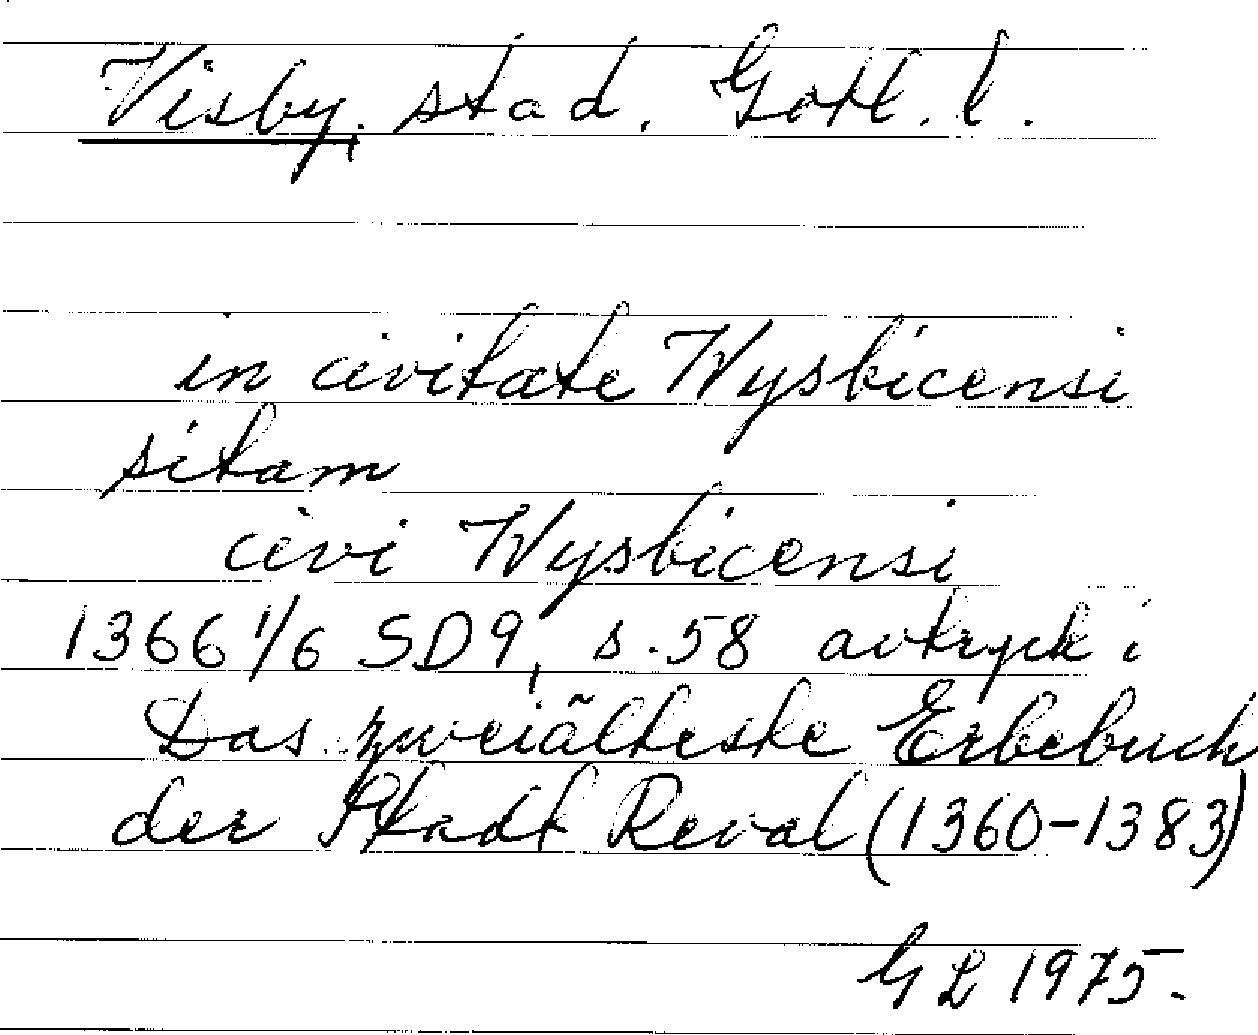 Visby, stad, Gotl. l.
in civitate Wysbicensi
sitam
civi Wysbicensi
1366 1/6 SD9, s.58 avtryck i
Das zweiälteste Erbebuch
der Stadt Reval (1360-1383)
GL 1975.